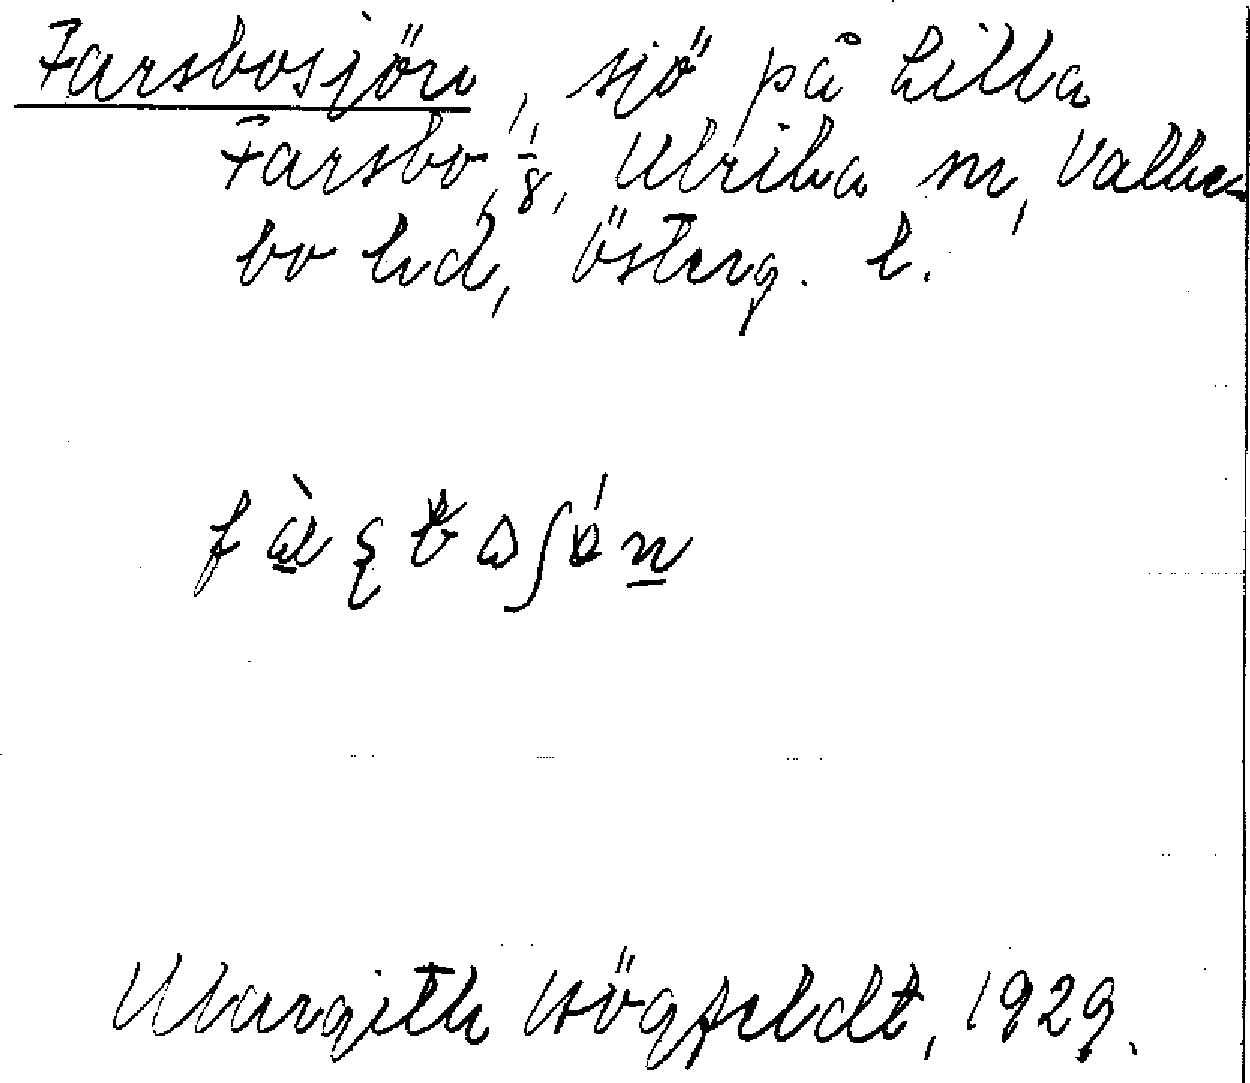 Farsbosjön, sjö på Lilla
Farsbo, 1/8, Ulrika sn, Valke-
bo hd, Österg. l.
Margith Högfeldt, 1929.